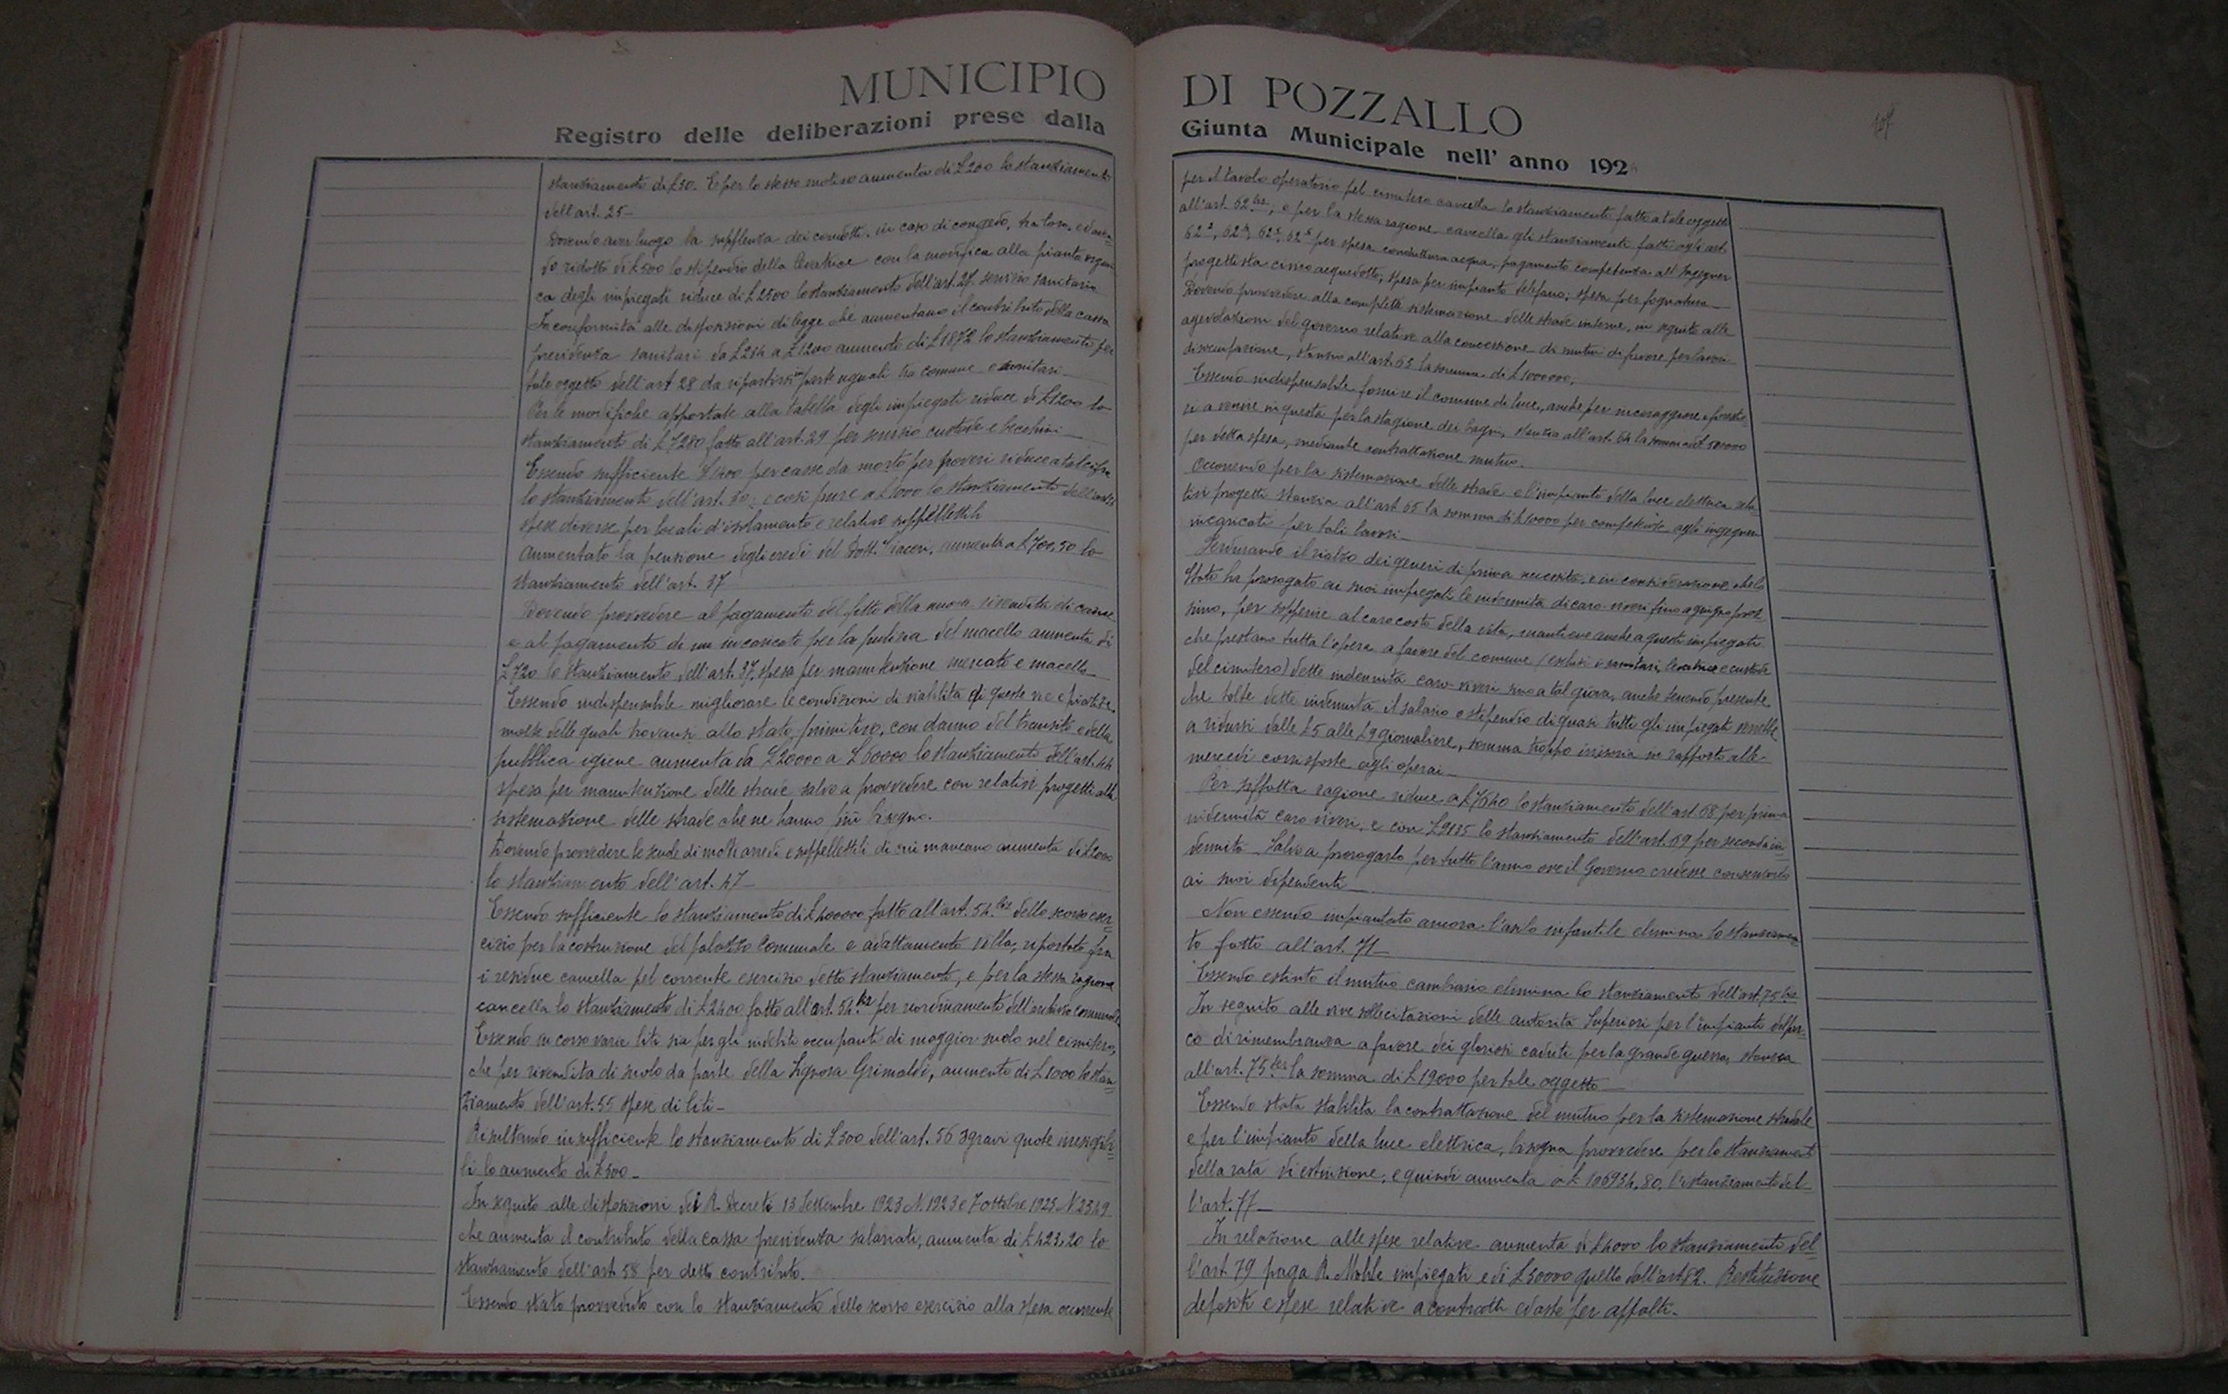 MUNICIPIO
Registro delle deliberazioni prese dalla
stanziamento di £50. E per lo stesso motivo aumenta di £200 lo stanziamento
dell'art. 25 –
Dovendo aver luogo la supplenza dei condotti, in caso di congedo, tra loro, ed
do ridotto di £500 lo stipendio della levatrice con la modifica alla pianta organi
ca degli impiegati riduce di £2500 lo stanziamento dell'art. 27 servizio sanitario
In conformità alle disposizioni di legge che aumentano il contributo della cassa
previdenza sanitari da £264 a £1200 aumenta di £1872 lo stanziamento per
tale oggetto dell'art 28 da ripartirsi in parte uguali tra comune e sanitari –
Per le modifiche apportate alla tabella degli impiegati riduce di £1200 lo
stanziamento di £7280 fatto all'art. 29 per servizio custode e becchini –
Essendo sufficiente £ 1400 per casse da morto per poveri riduce a tal cifra
lo stanziamento dell'art. 30; e così pure a £1000 lo stanziamento dell'art
spese diverse per locali d'isolamento e relative suppellettili
Aumentato la pensione degli eredi del Dott. Giacori, aumenta a £700,50 lo
stanziamento dell'art. 37
Dovendo provvedere al pagamento del fitto della nuova rivendita di carne
e al pagamento di un incaricato per la pulizia del macello aumenta di
£720 lo stanziamento dell'art. 37, spesa per manutenzione mercato e macello –
Essendo indispensabile migliorare le condizioni di viabilità di queste vie e piazze,
molte delle quali trovansi allo stato primitivo, con danno del transito e della
pubblica igiene aumenta da £20000 a £60000 lo stanziamento dell'art. 44
spesa per manutenzione delle strade salvo a provvedere con relativi progetti alla
sistemazione delle strade che ne hanno più bisogno.
Dovendo provvedere le scuole di molti arredi e suppellettili di cui mancano aumenta di £2000
lo stanziamento dell'art. 47 –
Essendo sufficiente lo stanziamento di £400000 fatto all'art. 54 bis dello scorso eser
cizio per la costruzione del palazzo Comunale e adattamento Villa, riportato fra
i residui cancella pel corrente esercizio detto stanziamento, e per la stessa ragione
cancella lo stanziamento di £2400 fatto all'art. 54 ter per riordinamento dell'archivio comunale
Essendo in corso varie liti sia per gli indebiti occupanti di maggior suolo nel cimitero,
che per rivendita di suolo da parte della Signora Grimaldi, aumenta di £1000 lo stan
ziamento dell'art. 55 spese di liti –
Risultando insufficiente lo stanziamento di £300 dell'art. 56 sgravi quote inesigibi=
li lo aumenta di £300 –
In seguito alle disposizioni dei R. Decreti 13 Settembre 1923 N. 1923 e 7 ottobre 1923 N 2349
che aumenta il contributo della cassa previdenza salariati, aumenta di £423,20 lo
stanziamento dell'art 58 per detto contributo.
Essendo stato provveduto con lo stanziamento dello scorso esercizio alla spesa occorrente
DI POZZALLO
Giunta Municipale nell' anno 192
107
per il tavolo operatorio pel cimitero cancella lo stanziamento fatto a tale oggetto
all'art. 62 bis, e per la stessa ragione cancella gli stanziamenti fatti agli art.
62 2, 62 4, 62 5, 62 6 per spesa conduttura acqua, pagamento competenza all'Ingegner
progettista civico acquedotto, spesa per impianto telefono; spesa per fognatura –
Dovendo provvedere alla completa sistemazione delle strade interne, in seguito alle
agevolazioni del governo relative alla concessione di mutui di favore per lavori
disoccupazione, stanzia all'art. 63 la somma di £1000000,
Essendo indispensabile fornire il comune di luce, anche per incoraggiare i foresti
ri a venire in questa per la stagione dei bagni, stanzia all'art. 64 la somma di £ 500000
per detta spesa, mediante contrattazione mutuo.
Occorrendo per la sistemazione delle strade e l'impianto della luce elettrica rela
tivi progetti stanzia all'art 65 la somma di £40000 per competenze agli ingegneri
incaricati per tali lavori –
Perdurando il rialzo dei generi di prima necessità, e in considerazione che lo
Stato ha prorogato ai suoi impiegati le indennità di caro-viveri fino a giugno pros
simo, per sopperire al caro costo della vita, mantiene anche a questi impiegati
che prestano tutta l'opera a favore del comune (esclusi i sanitari, levatrice e custode
del cimitero) dette indennità caro-viveri sino a tal giorno, anche tenendo presente
che tolte dette indennità il salario o stipendio di quasi tutti gli impiegati verrebbe
a ridursi dalle £5 alle £9 giornaliere, somma troppo irrisoria in rapporto alle
mercedi corrisposte agli operai –
Per siffatta ragione riduce a £7640 lo stanziamento dell'art. 68 per prima
indennità caro viveri, e con £9135 lo stanziamento dell'art. 69 per seconda in
dennità – Salvo a prorogarlo per tutto l'anno ove il Governo credesse conservarlo
ai suoi dipendenti –
Non essendo impiantato ancora l'asilo infantile elimina lo stanziamen
to fatto all'art. 71 –
Essendo estinto il mutuo cambiario elimina lo stanziamento dell'art. 75 bis
In seguito alle vive sollecitazioni delle autorità Superiori per l'impianto del par=
co di rimembranza a favore dei gloriosi caduti per la grande guerra, stanzia
all'art. 75 ter la somma di £19000 per tale oggetto –
Essendo stata stabilita la contrattazione del mutuo per la sistemazione stradale
e per l'impianto della luce elettrica, bisogna provvedere per lo stanziament
della rata di estinzione, e quindi aumenta a £ 106954,80, lo stanziamento del=
l'art. 77 –
In relazione alle spese relative aumenta di £4000 lo stanziamento del=
l'art. 79 paga R. Mobile impiegati e di £50000 quello dell'art 82. Restituzione
depositi e spese relative a contratti ed aste per appalti –